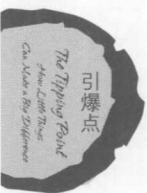 引爆点
The Tipping Point
How Little Things
Can Make a Big Difference